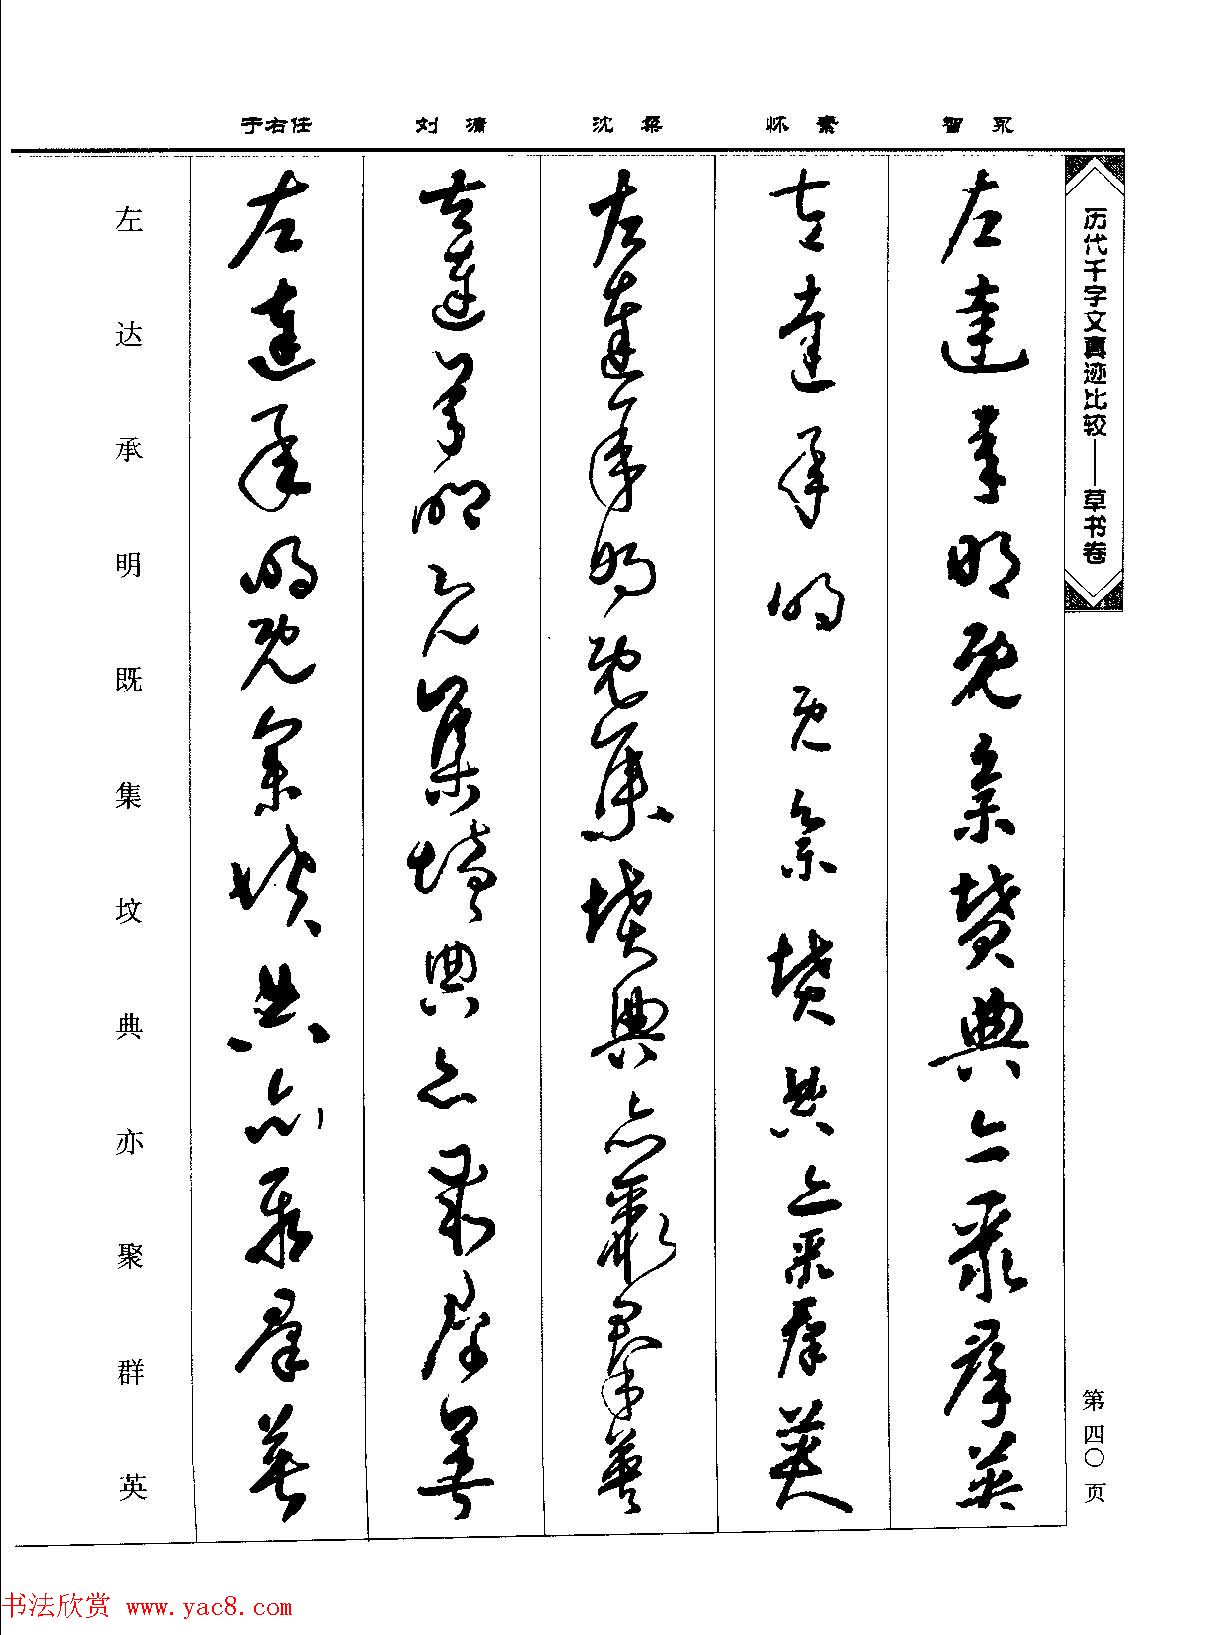 历代千字文真迹比较——草书卷
第四〇页
智永
左达承明既集坟典亦聚群英
怀素
左达承明既集坟典亦聚群英
沈粲
左达承明既集坟典亦聚群英
刘濤
左达承明既集坟典亦聚群英
于右任
左达承明既集坟典亦聚群英
左达承明既集坟典亦聚群英
书法欣赏 www.yac8.com